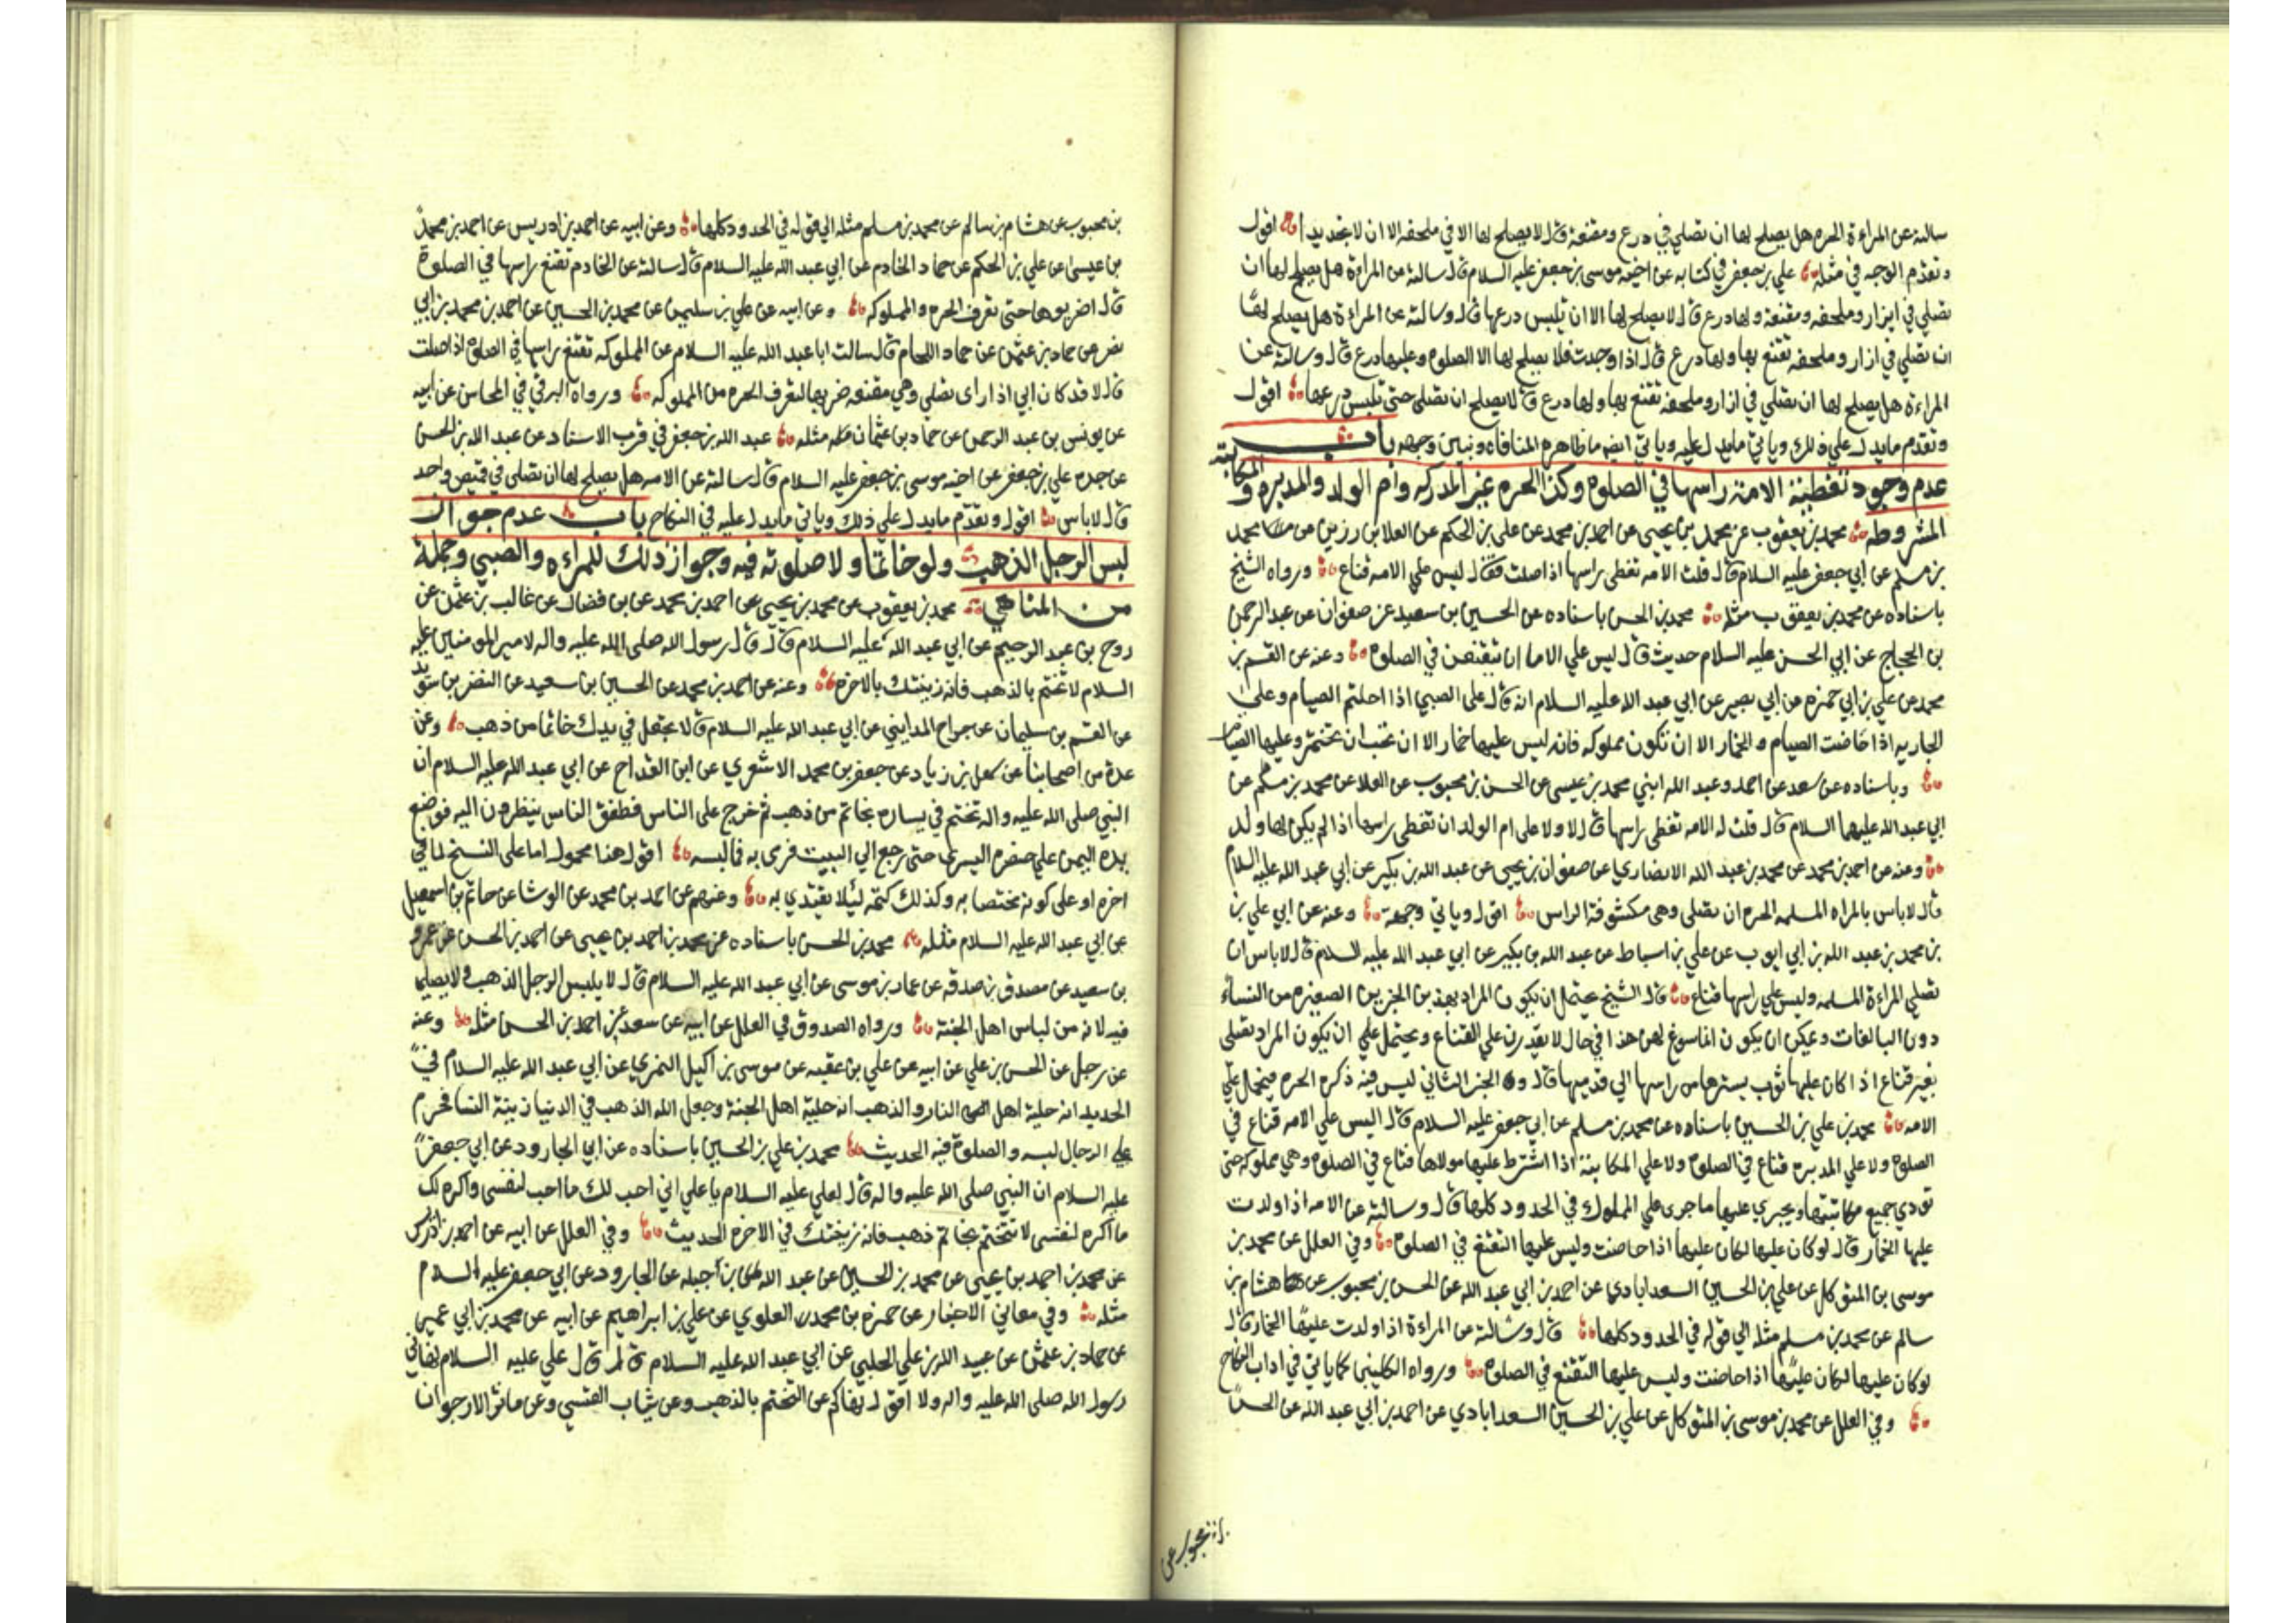 سالته عن المراءة الحره هل يصلح لها ان تصلي في درع ومقنعة قال لا يصلح لها الا في ملحفه الا ان لا تجد بدا اقول
وتقدم الوجه في مثله علي بن جعفر في كتابه عن اخيه موسى بن جعفر عليه السلام قال سالته عن المراءة هل يصلح لها ان
تصلي في ازار وملحفه ومقنعة ولها درع قال لا يصلح لها الا ان تلبس درعها قال وسالته عن المراءة هل يصلح لها
ان تصلي في ازار وملحفه تقنع بها ولها درع قال اذا وجدت فلا يصلح لها الا الصلوة وعليها درع قال وسالته عن
المراءة هل يصلح لها ان تصلي في ازار وملحفه تقنع بها ولها درع قال لا يصلح ان تصلى حتى تلبس درعها اقول
وتقدم ما يدل علي ذلك وياتي ما يدل عليه وياتي ايضا ما ظاهره المنافاه ونبين وجهه باب
عدم وجوب تغطية الامة راسها في الصلوة وكذا الحره غير المدركه وام الولد والمدبره والمكاتبة
المشروطه محمد بن يعقوب عن محمد بن يحيى عن احمد بن محمد عن علي بن الحكم عن العلا بن رزين عن محمد
بن مسلم عن ابي جعفر عليه السلام قال قلت الامه تغطى راسها اذا صلت فقال ليس علي الامه قناع ورواه الشيخ
باسناده عن محمد بن يعقوب مثله محمد بن الحسن باسناده عن الحسين بن سعيد عن صفوان عن عبد الرحمن
بن الحجاج عن ابي الحسن عليه السلام حديث قال ليس علي الاما ان تيقنعن في الصلوة وعنه عن القسم بن
محمد عن علي بن ابي حمزه عن ابي بصير عن ابي عبد الله عليه السلام انه قال على الصبي اذا احتلم الصيام وعلى
الجاريه اذا حاضت الصيام والخمار الا ان تكون مملوكه فانه ليس عليها خمار الا ان تحب ان تختمر وعليها الصيام
وباسناده عن سعد عن احمد وعبد الله ابني محمد بن عيسى عن الحسن بن محبوب عن العلا عن محمد بن مسلم عن
ابي عبد الله عليهما السلام قال قلت له الامه تغطي راسها قال لا ولا على ام الولد ان تغطى راسها اذا لم يكن لها ولد
وعنه عن احمد بن محمد عن محمد بن عبد الله الانصاري عن صفوان بن يحيى عن عبد الله بن بكير عن ابي عبد الله عليه السلام
قال لا باس بالمراه المسلمه الحره ان تصلى وهى مكشوفة الراس اقول وياتي وجهه وعنه عن ابي علي بن
بن محمد بن عبد الله بن ابي ايوب عن علي بن اسباط عن عبد الله بن بكير عن ابي عبد الله عليه السلام قال لا باس ان
تصلي المراءة المسلمه وليس علي راسها قناع قال الشيخ يحتمل ان يكون المراد بهذين الخبرين الصغيره من النساء
دون البالغات ويمكن ان يكون انما سوغ لهن هذا في حال لا يقدرن علي القناع ويحتمل علي ان يكون المراد تصلى
بغير قناع اذا كان عليها ثوب يسترها من راسها الي قدميها قال والخبر الثاني ليس فيه ذكره الحره فيحمل علي
الامه محمد بن علي بن الحسين باسناده عن محمد بن مسلم عن ابي جعفر عليه السلام قال ليس علي الامه قناع في
الصلوة ولا علي المدبره قناع في الصلوة ولا علي المكاتبة اذا اشترط عليها مولاها قناع في الصلوة وهي مملوكه حتى
تودي جميع مكاتبتها ويجري عليها ما جرى على المملوك في الحدود كلها قال وسالته عن الامه اذا ولدت
عليها الخمار قال لو كان عليها لكان عليها اذا حاضت وليس عليها التقنع في الصلوة وفي العلل عن محمد بن
موسى بن المتوكل عن علي بن الحسين السعدابادي عن احمد بن ابي عبد الله عن الحسن بن محبوب عن هشام بن
سالم عن محمد بن مسلم مثله الي قوله في الحدود كلها قال وسالته عن المراءة اذا ولدت عليها الخمار قال
لو كان عليها لكان عليها اذا حاضت وليس عليها التقنع في الصلوة ورواه الكليني كما ياتي في اداب النكاح
وفي العلل عن محمد بن موسى بن المتوكل عن علي بن الحسين السعدابادي عن احمد بن ابي عبد الله عن الحسن
بن محبوب عن
بن محبوب عن هشام بن سالم عن محمد بن مسلم مثله الي قوله في الحدود كلها وعن ابيه عن احمد بن ادريس عن احمد بن محمد
بن عيسى عن علي بن الحكم عن حماد الخادم عن ابي عبد الله عليه السلام قال سالته عن الخادم تقنع راسها في الصلوة
قال اضربوها حتى تعرف الحره والمملوكه وعن ابيه عن علي بن سليمن عن محمد بن الحسين عن احمد بن محمد بن ابي
نصر عن حماد بن عثمن عن حماد اللحام قال سالت ابا عبد الله عليه السلام عن المملوكه تقنع راسها في الصلوة اذا صلت
قال لا قد كان ابي اذا راى تصلي وهي مقنعه ضربها لتعرف الحره من المملوكه ورواه البرقي في المحاسن عن ابيه
عن يونس بن عبد الرحمن عن حماد بن عثمان مثله عبد الله بن جعفر في قرب الاسناد عن عبد الله بن الحسن
عن جده علي بن جعفر عن اخيه موسى بن جعفر عليه السلام قال سالته عن الامه هل يصلح لها ان تصلى في قميص واحد
قال لا باس اقول وتقدم ما يدل علي ذلك وياتي ما يدل عليه في النكاح باب عدم جواز
لبس الرجل الذهب ولو خاتما ولا صلوته فيه وجواز ذلك للمراءه والصبي وجملة
من المناهي محمد بن يعقوب عن محمد بن يحيى عن احمد بن محمد عن بن فضال عن غالب بن عثمن عن
روح بن عبد الرحيم عن ابي عبد الله عليه السلام قال قال رسول الله صلى الله عليه واله لامير المومنين عليه
السلام لا تختم بالذهب فانه زينتك بالاخره وعنه عن احمد بن محمد عن الحسين بن سعيد عن النضر بن سويد
عن القسم بن سليمان عن جراح المدايني عن ابي عبد الله عليه السلام قال لا تجعل في يدك خاتما من ذهب وعن
عدة من اصحابنا عن سهل بن زياد عن جعفر بن محمد الاشعري عن ابن القداح عن ابي عبد الله عليه السلام ان
النبي صلى الله عليه واله تختم في يساره بخاتم من ذهب ثم خرج على الناس فطفق الناس ينظرون اليه فوضع
يده اليمين علي خنصره اليسرى حتى رجع الي البيت فرمى به فما لبسه اقول هذا محمول اما على النسخ لما في
اخره او على كونه مختصا به وكذلك كتمه ليلا يقتدي به وعنهم عن احمد بن محمد عن الوشا عن حاتم بن اسمعيل
عن ابي عبد الله عليه السلام مثله محمد بن الحسن باسناده عن محمد بن احمد بن يحيى عن احمد بن الحسن عن عمرو
بن سعيد عن مصدق بن صدقه عن عمار بن موسى عن ابي عبد الله عليه السلام قال لا يلبس الرجل الذهب ولا يصلي
فيه لانه من لباس اهل الجنة ورواه الصدوق في العلل عن ابيه عن سعد عن احمد بن الحسن مثله وعنه
عن رجل عن الحسن بن علي عن ابيه عن علي بن عقبه عن موسى بن اكيل النمري عن ابي عبد الله عليه السلام في
الحديد انه حلية اهل النار والذهب انه حلية اهل الجنة وجعل الله الذهب في الدنيا زينة النسا فحرم
على الرجال لبسه والصلوة فيه الحديث محمد بن علي بن الحسين باسناده عن ابي الجارود عن ابي جعفر
عليه السلام ان النبي صلى الله عليه واله قال لعلي عليه السلام يا علي اني احب لك ما احب لنفسى واكره لك
ما اكره لنفسى لا تتختم بخاتم ذهب فانه زينتك في الاخره الحديث وفي العلل عن ابيه عن احمد بن ادريس
عن محمد بن احمد بن يحيى عن محمد بن الحسين عن عبد الله بن جبله عن الجارود عن ابي جعفر عليه السلام
مثله وفي معاني الاخبار عن حمزه بن محمد العلوي عن علي بن ابراهيم عن ابيه عن محمد بن ابي عمير
عن حماد بن عثمن عن عبيد الله بن علي الحلبي عن ابي عبد الله عليه السلام قال قال علي عليه السلام نهاني
رسول الله صلى الله عليه واله ولا اقول نهاكم عن التختم بالذهب وعن ثياب القسي وعن مياثر الارجوان